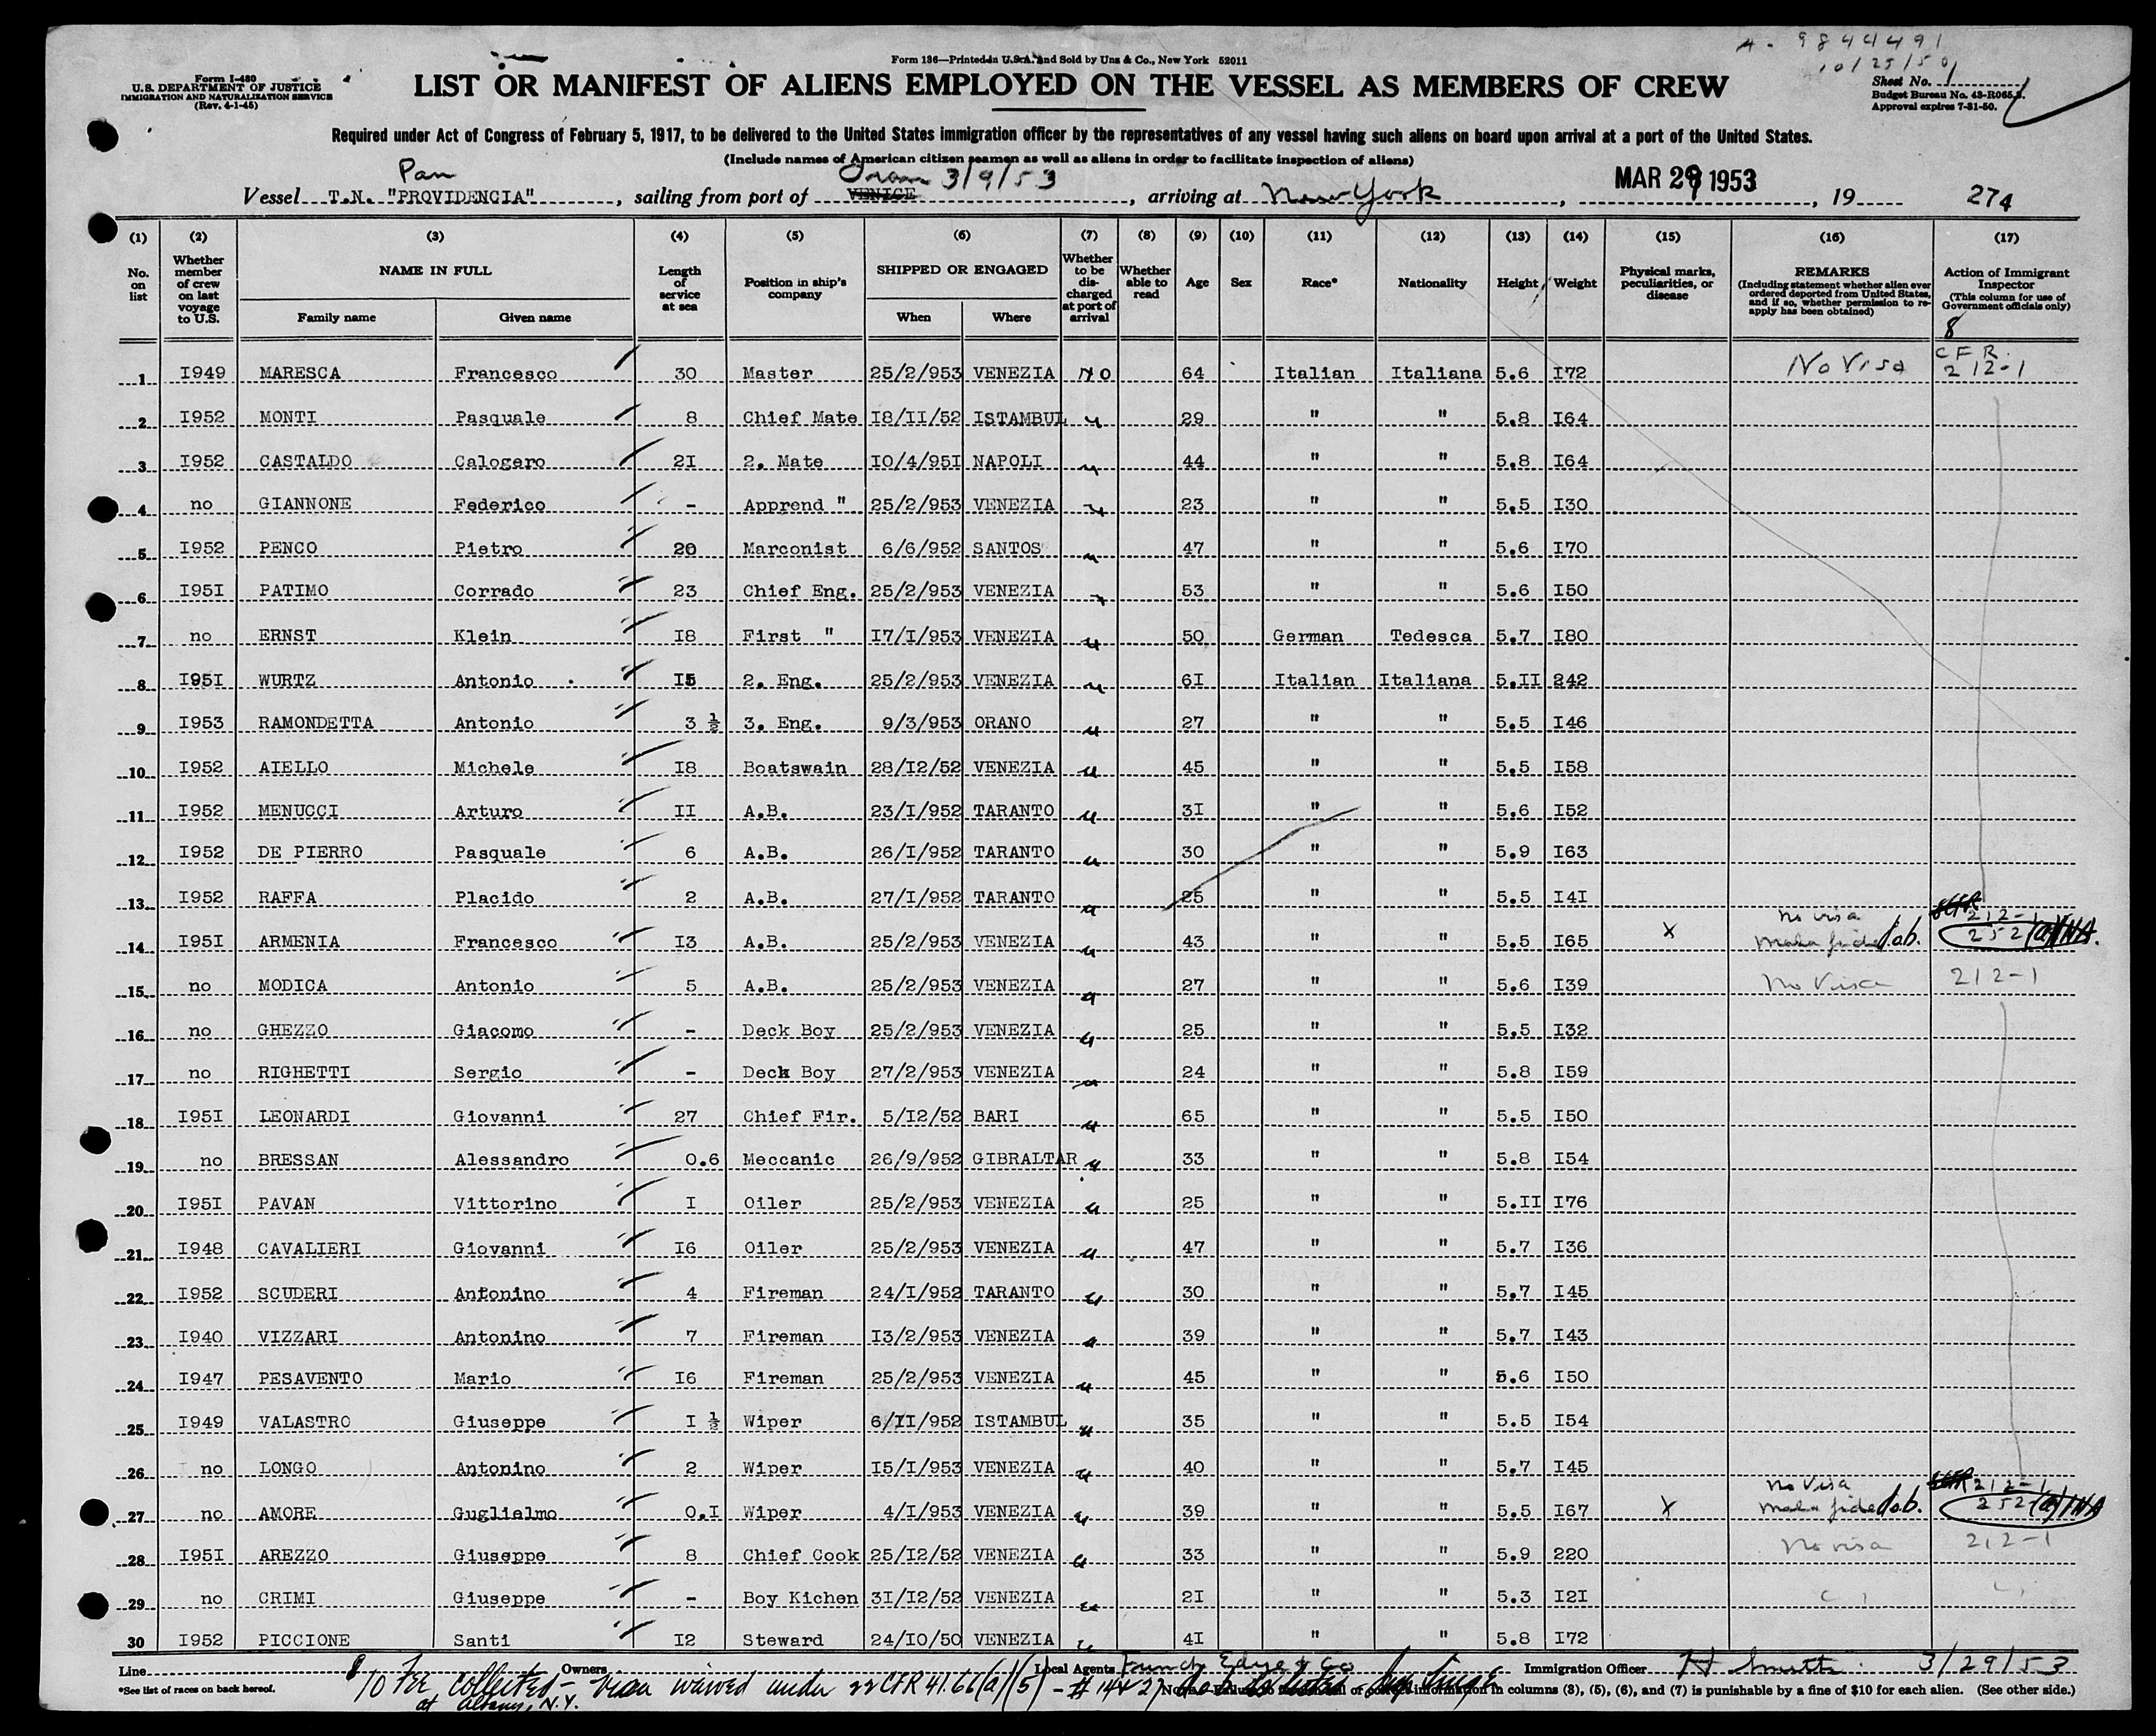 A- 9844491
10/25/50
Form I-480
U.S. DEPARTMENT OF JUSTICE
IMMIGRATION AND NATURALIZATION SERVICE
(Rev. 4-1-45)
Form 136—Printed in U.S.A. and Sold by Unz & Co., New York 52011
LIST OR MANIFEST OF ALIENS EMPLOYED ON THE VESSEL AS MEMBERS OF CREW
Sheet No. 1
Budget Bureau No. 43-R065.3.
Approval expires 7-31-50.
Required under Act of Congress of February 5, 1917, to be delivered to the United States immigration officer by the representatives of any vessel having such aliens on board upon arrival at a port of the United States.
(Include names of American citizen seamen as well as aliens in order to facilitate inspection of aliens)
Pan Oran 3/9/53 MAR 29 1953
Vessel T.N. "PROVIDENCIA", sailing from port of VENICE, arriving at New York, 19 274
(1) (2) (3) (4) (5) (6) (7) (8) (9) (10) (11) (12) (13) (14) (15) (16) (17)
No. on list Whether member of crew on last voyage to U.S. NAME IN FULL Family name Given name Length of service at sea Position in ship's company SHIPPED OR ENGAGED When Where Whether to be discharged at port of arrival Whether able to read Age Sex Race* Nationality Height Weight Physical marks, peculiarities, or disease REMARKS (Including statement whether alien ever ordered deported from United States, and if so, whether permission to reapply has been obtained) Action of Immigrant Inspector (This column for use of Government officials only)
8 CFR
1 I949 MARESCA Francesco 30 Master 25/2/953 VENEZIA No 64 Italian Italiana 5.6 I72 No Visa 212-1
2 I952 MONTI Pasquale 8 Chief Mate I8/II/52 ISTAMBUL " 29 " " 5.8 I64
3 I952 CASTALDO Calogero 2I 2. Mate IO/4/95I NAPOLI " 44 " " 5.8 I64
4 no GIANNONE Federico - Apprend " 25/2/953 VENEZIA " 23 " " 5.5 I30
5 I952 PENCO Pietro 20 Marconist 6/6/952 SANTOS " 47 " " 5.6 I70
6 I95I PATIMO Corrado 23 Chief Eng. 25/2/953 VENEZIA " 53 " " 5.6 I50
7 no ERNST Klein I8 First " I7/I/953 VENEZIA " 50 German Tedesca 5.7 I80
8 I95I WURTZ Antonio I5 2. Eng. 25/2/953 VENEZIA " 6I Italian Italiana 5.II 242
9 I953 RAMONDETTA Antonio 3 ½ 3. Eng. 9/3/953 ORANO " 27 " " 5.5 I46
10 I952 AIELLO Michele I8 Boatswain 28/I2/52 VENEZIA " 45 " " 5.5 I58
11 I952 MENUCCI Arturo II A.B. 23/I/952 TARANTO " 3I " " 5.6 I52
12 I952 DE PIERRO Pasquale 6 A.B. 26/I/952 TARANTO " 30 " " 5.9 I63
13 I952 RAFFA Placido 2 A.B. 27/I/952 TARANTO " 25 " " 5.5 I4I
no visa 212-1
14 I95I ARMENIA Francesco I3 A.B. 25/2/953 VENEZIA " 43 " " 5.5 I65 X mala fide 252(a) INA.
15 no MODICA Antonio 5 A.B. 25/2/953 VENEZIA " 27 " " 5.6 I39 no Visa 212-1
16 no GHEZZO Giacomo - Deck Boy 25/2/953 VENEZIA " 25 " " 5.5 I32
17 no RIGHETTI Sergio - Deck Boy 27/2/953 VENEZIA " 24 " " 5.8 I59
18 I95I LEONARDI Giovanni 27 Chief Fir. 5/I2/52 BARI " 65 " " 5.5 I50
19 no BRESSAN Alessandro 0.6 Meccanic 26/9/952 GIBRALTAR " 33 " " 5.8 I54
20 I95I PAVAN Vittorino I Oiler 25/2/953 VENEZIA " 25 " " 5.II I76
21 I948 CAVALIERI Giovanni I6 Oiler 25/2/953 VENEZIA " 47 " " 5.7 I36
22 I952 SCUDERI Antonino 4 Fireman 24/I/952 TARANTO " 30 " " 5.7 I45
23 I940 VIZZARI Antonino 7 Fireman I3/2/953 VENEZIA " 39 " " 5.7 I43
24 I947 PESAVENTO Mario I6 Fireman 25/2/953 VENEZIA " 45 " " 5.6 I50
25 I949 VALASTRO Giuseppe I ½ Wiper 6/II/952 ISTAMBUL " 35 " " 5.5 I54
26 no LONGO Antonino 2 Wiper I5/I/953 VENEZIA " 40 " " 5.7 I45
no Visa 212-1
27 no AMORE Guglielmo 0.I Wiper 4/I/953 VENEZIA " 39 " " 5.5 I67 X mala fide 252(a) INA
28 I95I AREZZO Giuseppe 8 Chief Cook 25/I2/52 VENEZIA " 33 " " 5.9 220 no visa 212-1
29 no CRIMI Giuseppe - Boy Kichen 3I/I2/52 VENEZIA " 2I " " 5.3 I2I
30 I952 PICCIONE Santi I2 Steward 24/IO/50 VENEZIA " 4I " " 5.8 I72
Line Owners Local Agents Funch Edye & Co Immigration Officer H Smith 3/29/53
*See list of races on back hereof.
$10 Fee collected - visa waived under 22 CFR 41.66(a)(5) - # 14 & 27
at Albany, N.Y.
information in columns (3), (5), (6), and (7) is punishable by a fine of $10 for each alien. (See other side.)